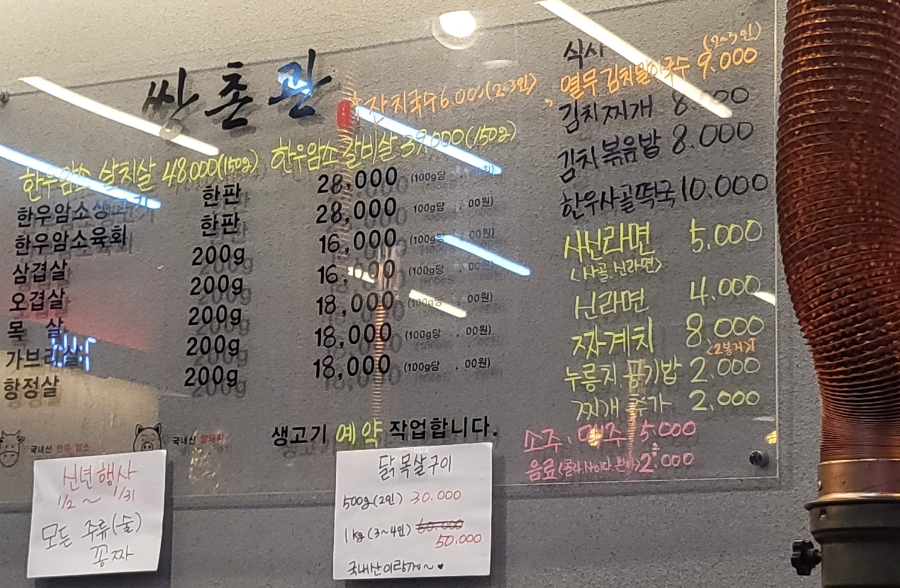 쌍촌관
잔치국수 6.000 (2~3인)
한우암소 살치살 48.000 (150g)
한우암소 갈비살 39.000 (150g)
한우암소생고기 한판 28,000 (100g당 , 00원)
한우암소육회 한판 28,000 (100g당 , 00원)
삼겹살 200g 16,000 (100g당 , 00원)
오겹살 200g 16,000 (100g당 , 00원)
목 살 200g 18,000 (100g당 , 00원)
가브리살 200g 18,000 (100g당 , 00원)
항정살 200g 18,000 (100g당 , 00원)
국내산 한우 암소
국내산
생고기 예약 작업합니다.
식사
(2~3인)
열무 김치말이국수 9.000
김치찌개 8.000
김치볶음밥 8.000
한우사골떡국 10.000
사신라면 5.000
<사골 신라면>
신라면 4.000
짜계치 8.000
<2봉지>
누룽지 공기밥 2.000
찌개 추가 2.000
소주, 맥주 5.000
음료 <콜라 사이다 환타> 2.000
신년행사
1/2 ~ 1/31
모든 주류(술)
꽁짜
닭목살구이
500g (2인) 30.000
1kg (3~4인) 60.000
50.000
국내산이랑께~♥